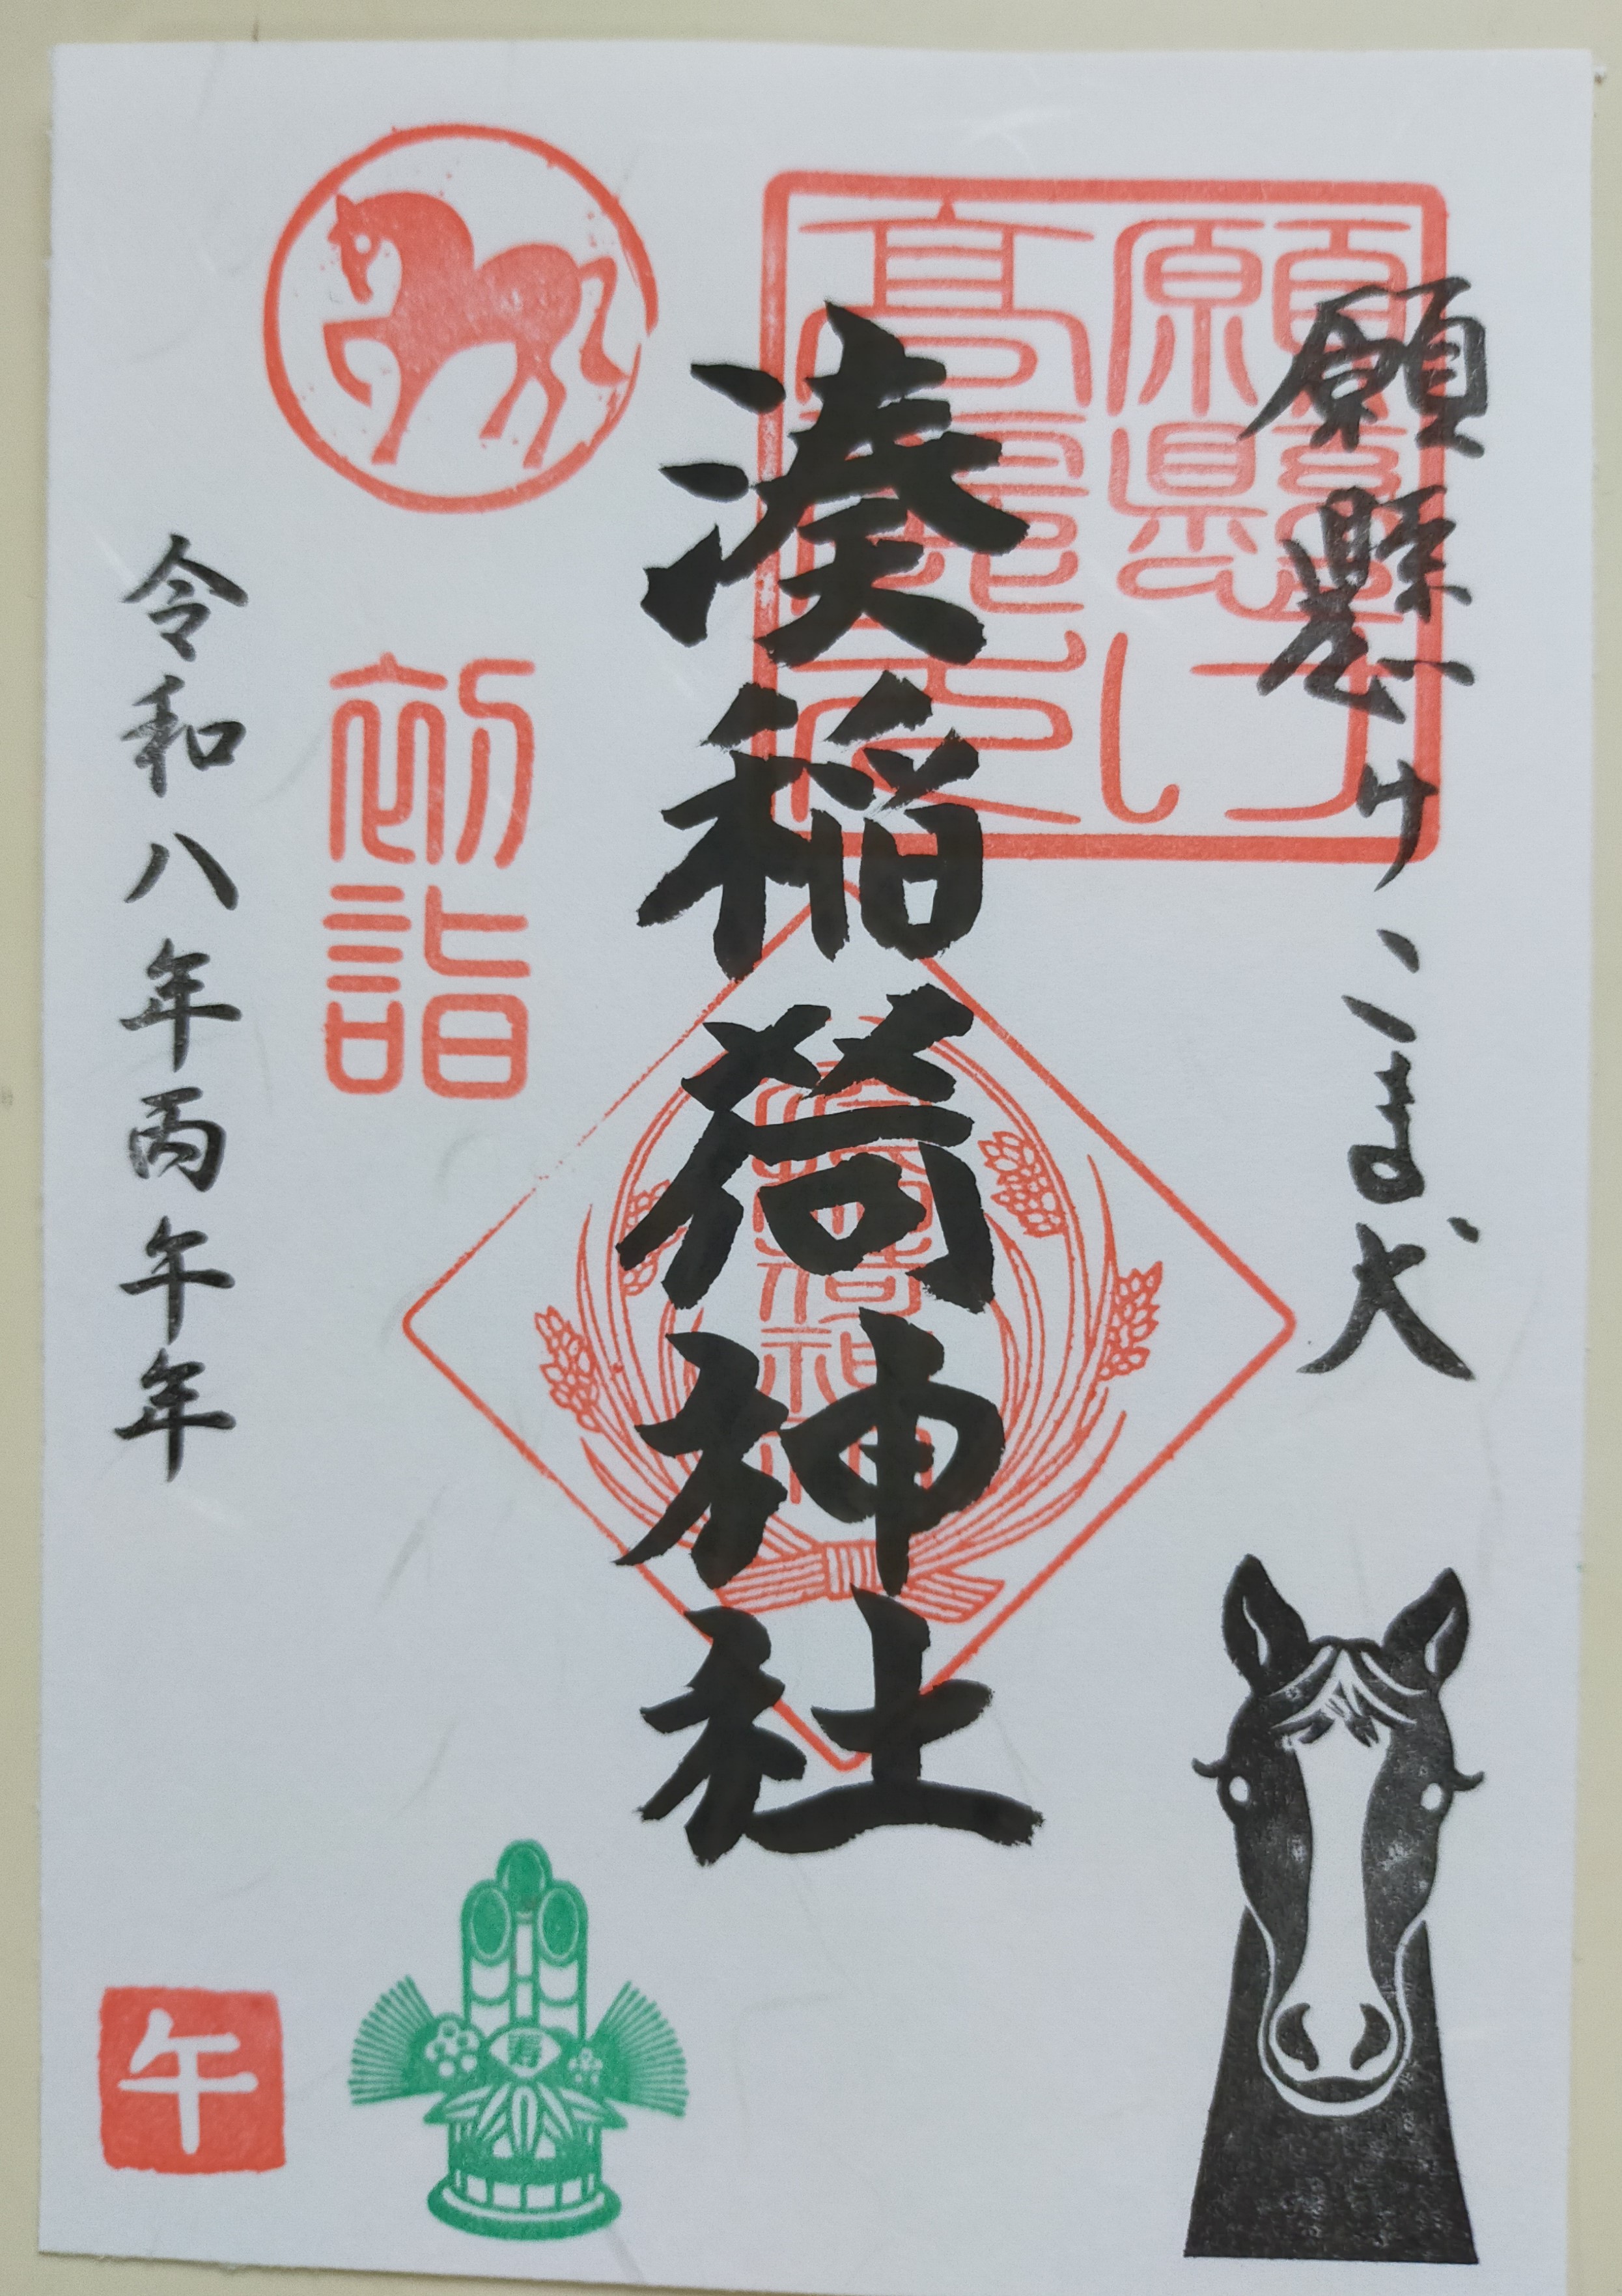 願懸けこま犬
願懸け
高麗犬
湊稲荷神社
初詣
令和八年丙午年
寿
午